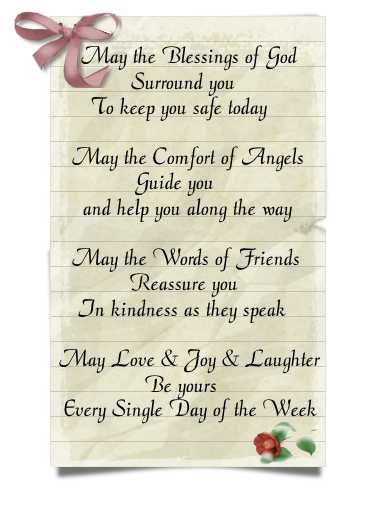 May the Blessings of God
Surround you
To keep you safe today
May the Comfort of Angels
Guide you
and help you along the way
May the Words of Friends
Reassure you
In kindness as they speak
May Love & Joy & Laughter
Be yours
Every Single Day of the Week